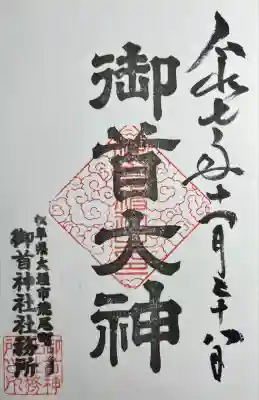 令和七年十一月二十八日
御首大神
岐阜県大垣市荒尾町
御首神社社務所